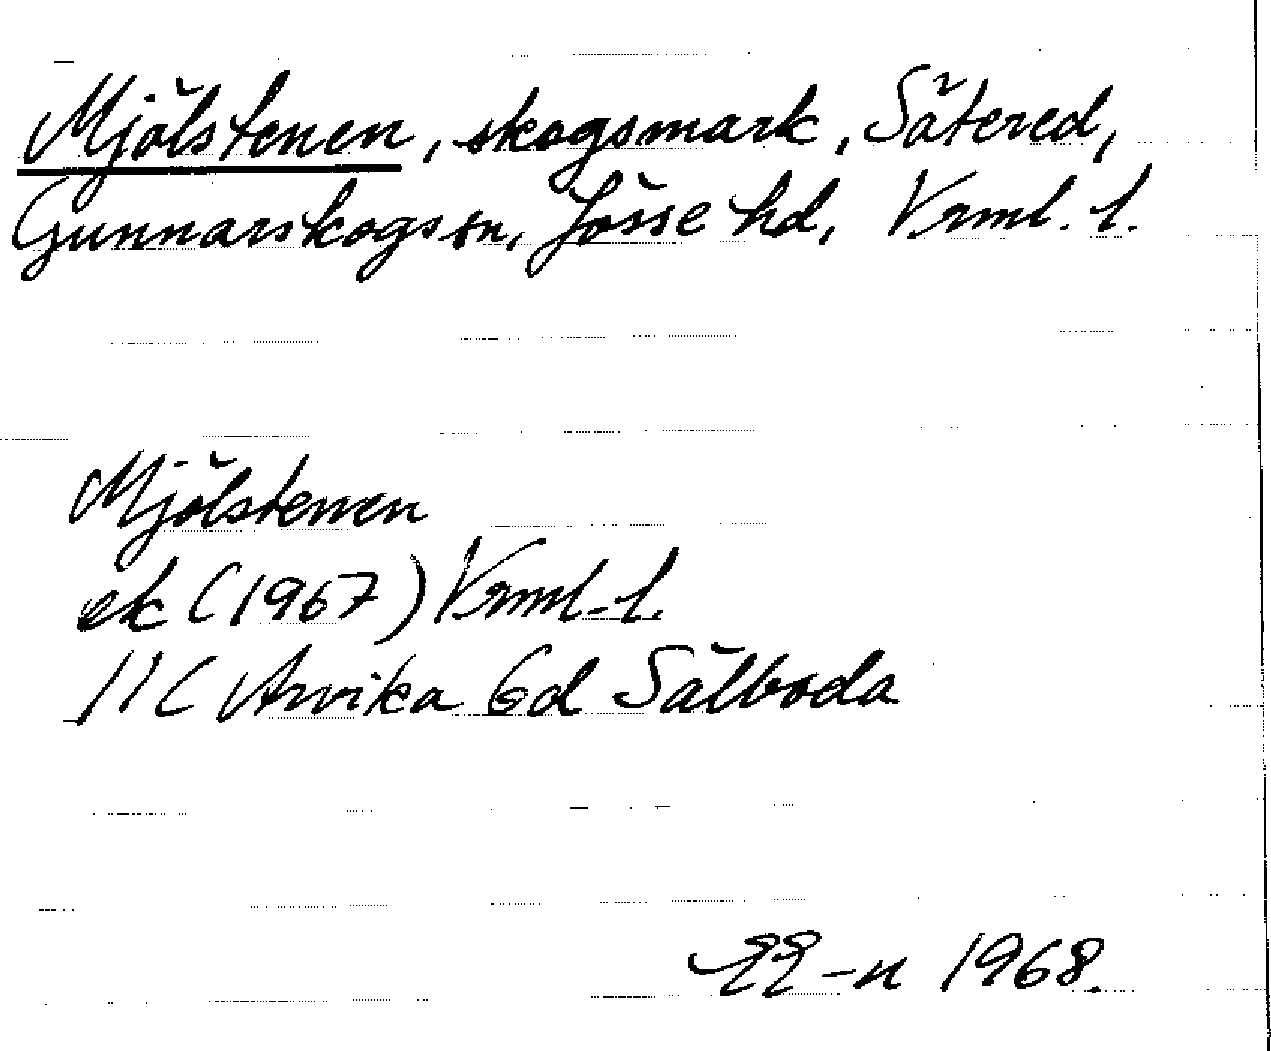 Mjölstenen, skogsmark, Sätered,
Gunnarskogs sn, Jösse hd, Vrml. l.
Mjölstenen
ek (1967) Vrml. l.
11C Arvika 6d Sälboda
1968.